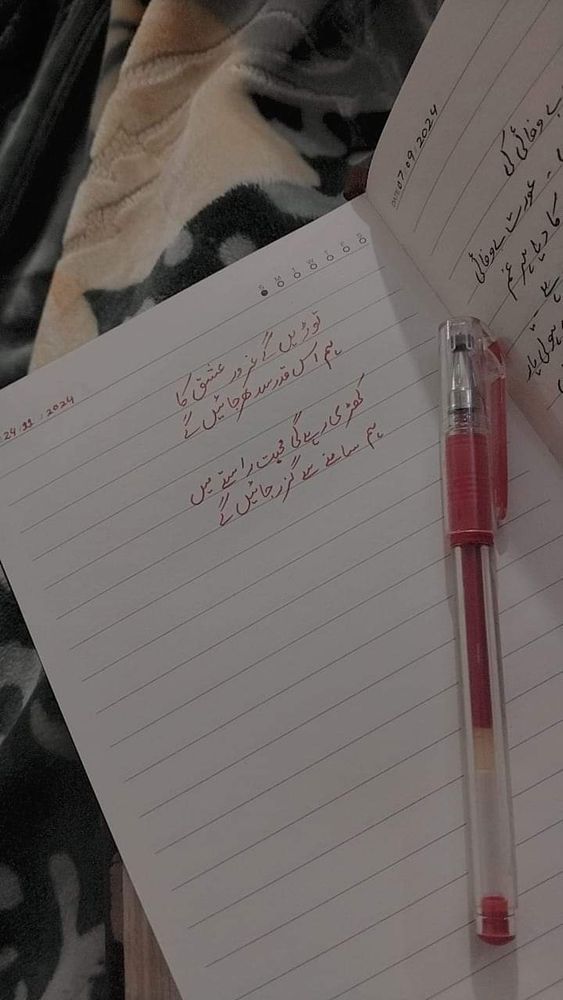 24.11.2024
S M T W T F S
توڑیں گے غرور عشق کا
ہم اس قدر سدھر جائیں گے
کھڑی رہے گی محبت راستے میں
ہم سامنے سے گزر جائیں گے
DATE 07.09.2024
بے وفائی کی
عورت بے وفائی
کا دیا ہر غم